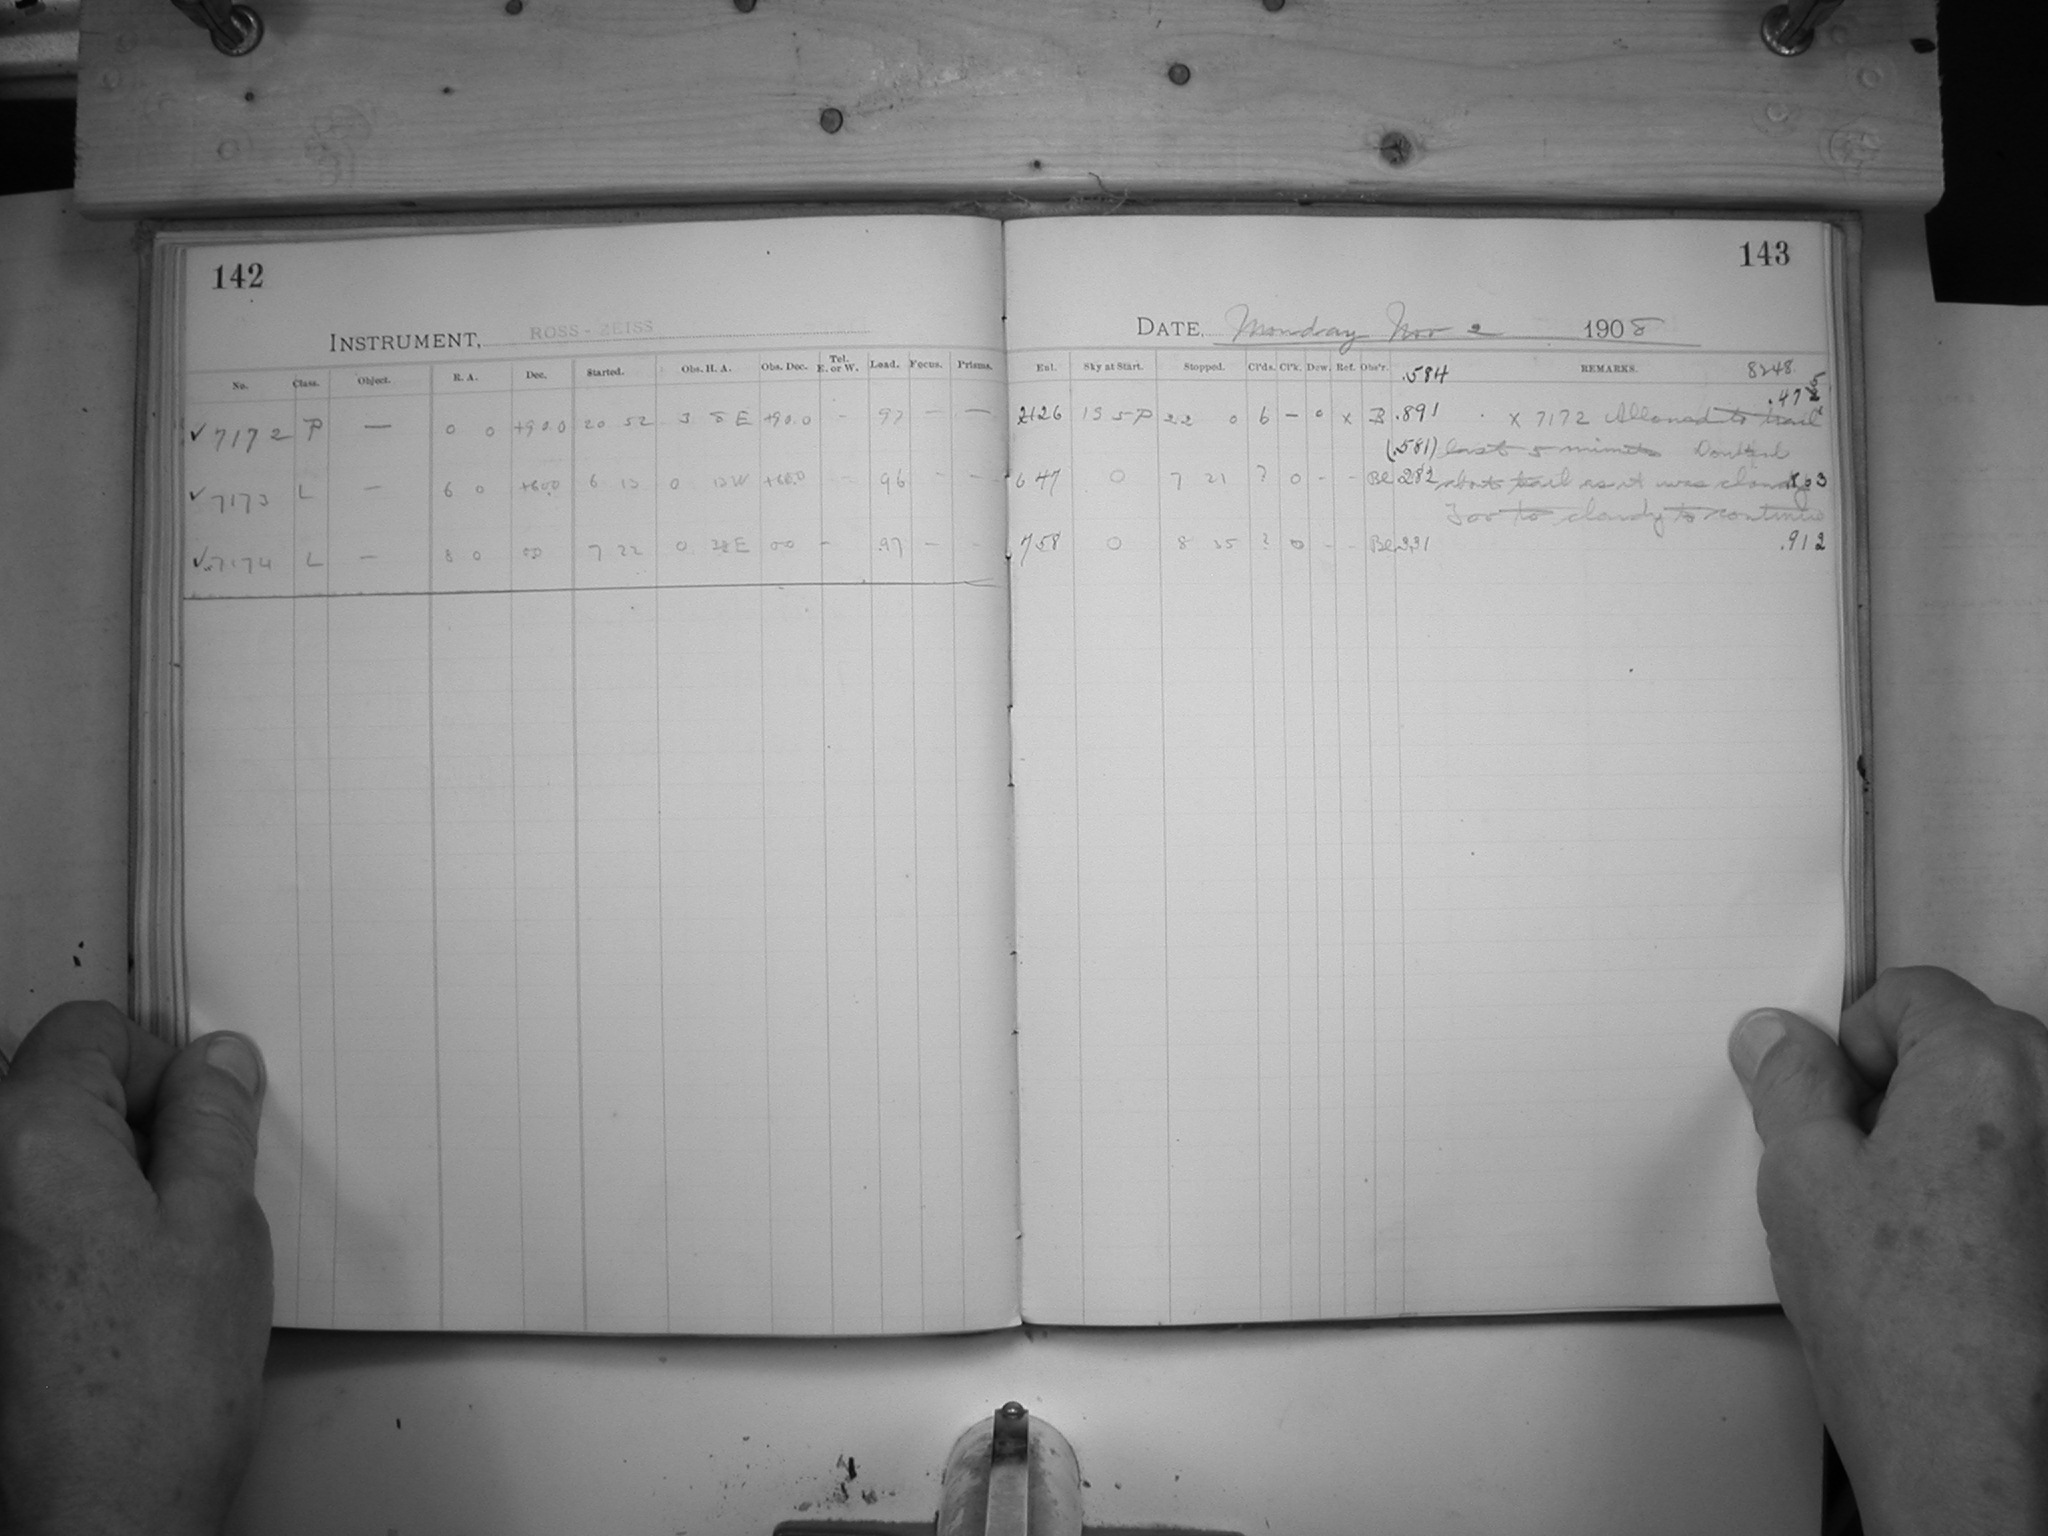 142
INSTRUMENT, ROSS-ZEISS
No. Class. Object. R. A. Dec. Started. Obs. H. A. Obs. Dec. Tel. E. or W. Lead. Focus. Prisms.
✓ 7172 P — 0 0 +90.0 20 52 3 8 E +90.0 - 97 — —
✓ 7173 L — 6 0 +60.0 6 13 0 13 W +60.0 - 96 - -
✓ 7174 L — 8 0 00 7 22 0 E 00 - 97 - -
143
DATE, Monday Nov 2 1908
Ent. Sky at Start. Stopped. Cl'ds. Cl'k. Dew. Ref. Obs'r. .584 REMARKS. 8248.
2126 1 S 5 P 22 0 6 — 0 x B .891 x 7172 Allowed to trail
(.581) last 5 minutes Doubtful
6 47 0 7 21 ? 0 - - Be .282 about trail as it was cloudy
Too to cloudy to continue
7 58 0 8 35 ? 0 - - Be .331 .912